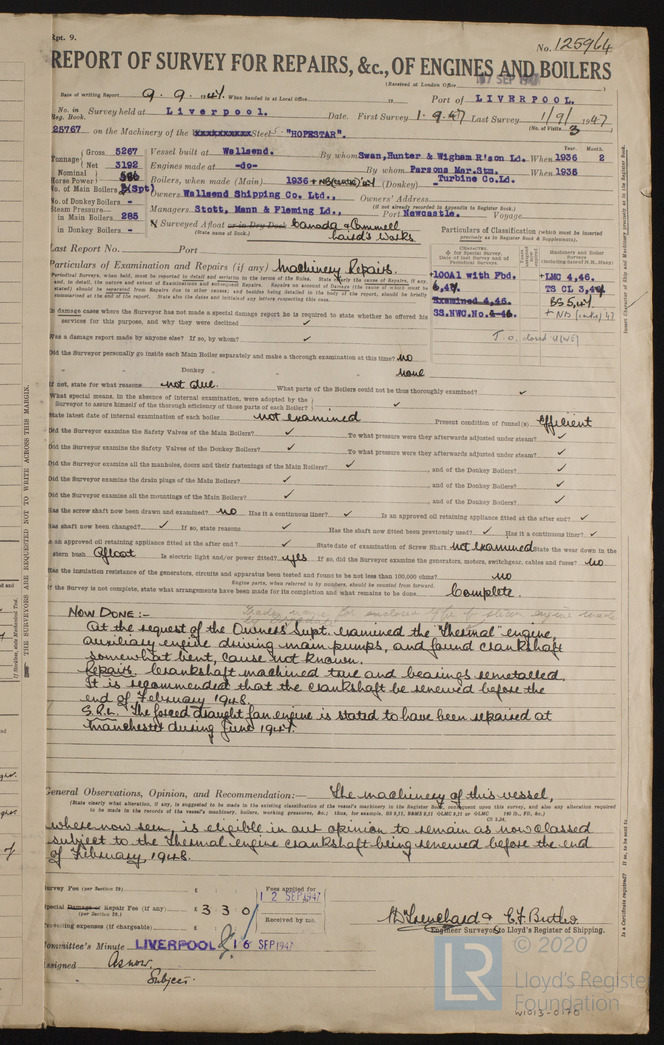 Rpt. 9.
No. 125964
REPORT OF SURVEY FOR REPAIRS, &c., OF ENGINES AND BOILERS
(Received at London Office 17 SEP 1947 )
Date of writing Report 9. 9. 1947. When handed in at Local Office 19 Port of LIVERPOOL.
No. in Reg. Book. Survey held at Liverpool. Date. First Survey 1. 9. 47 Last Survey 1/9/ 1947
(No. of Visits 3 )
25767 on the Machinery of the Steel S. "HOPESTAR".
Tonnage Gross 5267 Vessel built at Wallsend. By whom Swan, Hunter & Wigham R'son Ld. When Year. 1936 Month. 2
Net 3192 Engines made at -do- By whom Parsons Mar. Stm. Turbine Co. Ld. When 1935
Nominal Horse Power
Boilers, when made (Main) 1936 (Donkey) -
No. of Main Boilers 3(Spt) Owners Wallsend Shipping Co. Ltd., Owners' Address
(If not already recorded in Appendix to Register Book.)
No. of Donkey Boilers - Managers Stott, Mann & Fleming Ld., Port Newcastle. Voyage
Steam Pressure in Main Boilers 285 Surveyed Afloat or in Dry Dock Canada & Cammell Laird's Works
(State name of Dock.)
in Donkey Boilers -
Particulars of Classification (which must be inserted precisely as in Register Book & Supplements).
Last Report No. Port
Particulars of Examination and Repairs (if any) Machinery Repairs.
+100A1 with Fbd. +LMC 4,46.
6,47 TS CL 3,
Examined 4,46. BS 5,47
SS.NWC.No.
In damage cases where the Surveyor has not made a special damage report he is required to state whether he offered his
services for this purpose, and why they were declined ✓
Was a damage report made by anyone else? If so, by whom? ✓
Did the Surveyor personally go inside each Main Boiler separately and make a thorough examination at this time? No
" " Donkey " " " none
If not, state for what reasons not due. What parts of the Boilers could not be thus thoroughly examined? ✓
What special means, in the absence of internal examination, were adopted by the
Surveyor to assure himself of the thorough efficiency of those parts of each Boiler? ✓
State latest date of internal examination of each boiler not examined Present condition of funnel(s) Efficient
Did the Surveyor examine the Safety Valves of the Main Boilers? ✓ To what pressure were they afterwards adjusted under steam? ✓
Did the Surveyor examine the Safety Valves of the Donkey Boilers? ✓ To what pressure were they afterwards adjusted under steam? ✓
Did the Surveyor examine all the manholes, doors and their fastenings of the Main Boilers? ✓ , and of the Donkey Boilers? ✓
Did the Surveyor examine the drain plugs of the Main Boilers? ✓ , and of the Donkey Boilers? ✓
Did the Surveyor examine all the mountings of the Main Boilers? ✓ , and of the Donkey Boilers? ✓
Has the screw shaft now been drawn and examined? NO Has it a continuous liner? ✓ Is an approved oil retaining appliance fitted at the after end? ✓
Has shaft now been changed? ✓ If so, state reasons ✓ Has the shaft now fitted been previously used? ✓ Has it a continuous liner? ✓
Is an approved oil retaining appliance fitted at the after end? ✓ State date of examination of Screw Shaft not examined State the wear down in the
stern bush Afloat Is electric light and/or power fitted? yes If so, did the Surveyor examine the generators, motors, switchgear, cables and fuses? NO
Has the insulation resistance of the generators, circuits and apparatus been tested and found to be not less than 100,000 ohms? NO
Engine parts, when referred to by numbers, should be counted from forward.
If the Survey is not complete, state what arrangements have been made for its completion and what remains to be done Complete.
NOW DONE :-
At the request of the Owners Supt. examined the "Thermal" engine,
auxiliary engine driving main pumps, and found crankshaft
somewhat bent, cause not known.
Repairs. Crankshaft machined true and bearings remetalled.
It is recommended that the crankshaft be renewed before the
end of February 1948.
S.R.L. The forced draught fan engine is stated to have been repaired at
Manchester during June 1947.
General Observations, Opinion, and Recommendation:— The machinery of this vessel,
(State clearly what alteration, if any, is suggested to be made in the existing classification of the vessel's machinery in the Register Book, consequent upon this survey, and also any alteration required
to be made in the records of the vessel's machinery, boilers, working pressures, &c.; thus, for example, BS 9,11, B&MS 9,11 or +LMC 9,11 or +LMC 140 lb., FD, &c.)
CS 3,34.
where now seen, is eligible in our opinion to remain as now classed
subject to the Thermal engine crankshaft being renewed before the end
of February, 1948.
Survey Fee (per Section 29) £ : : Fees applied for
12 SEP 1947
Special Damage or Repair Fee (if any) £ 3 3 0
(per Section 29.)
Received by me,
Travelling expenses (if chargeable) £
Engineer Surveyor to Lloyd's Register of Shipping.
Committee's Minute LIVERPOOL 16 SEP 1947
Assigned As now.
Subject.
THE SURVEYORS ARE REQUESTED NOT TO WRITE ACROSS THIS MARGIN.
© 2020
LR
Lloyd's Register
Foundation
W1013-0170